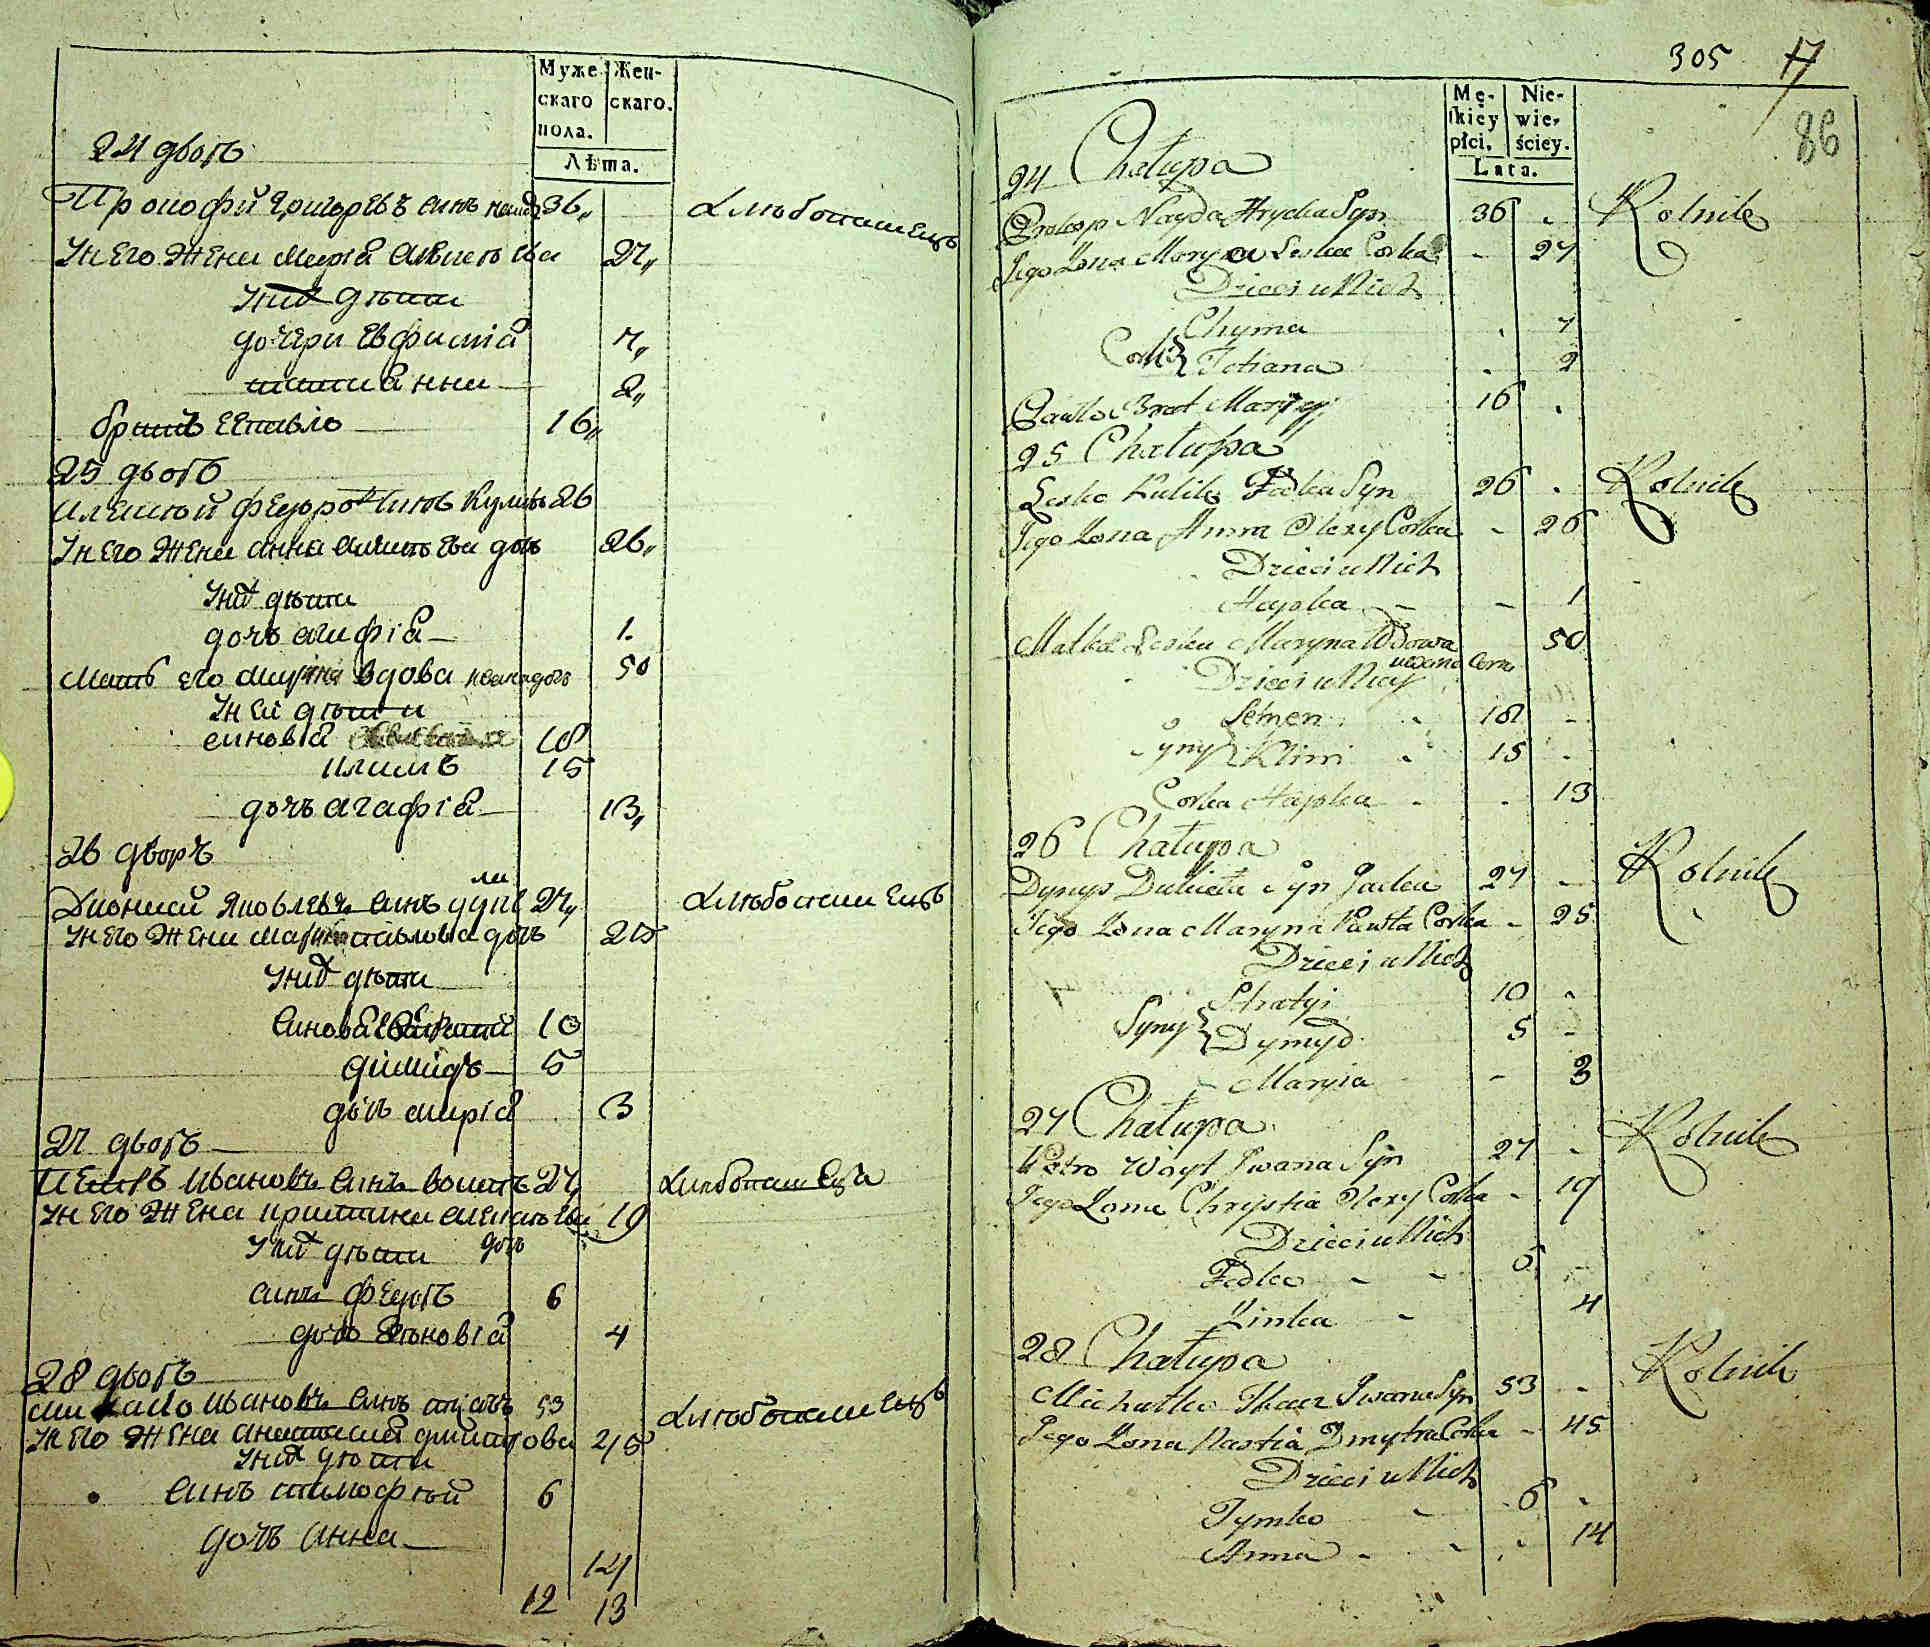 Муже- Жен-
скаго скаго.
пола.
Лѣта.
24 дворъ
Прокофій Григорьевъ синъ 36
У него жена Марія 27
У нихъ дѣти
дочери Евфимія 7
Татіанна 2
братъ Ея Павло 16
25 дворъ
Алексѣй Федоровъ синъ Куликъ 26
У него жена Анна Алексѣева дочь 26
У нихъ дѣти
дочь Агафія 1
Мать его Марина вдова 50
У ей дѣти
синовія 18
Климъ 15
дочь Агафія 13
26 дворъ
Діонисій Яковлевъ синъ 27
У него жена Марина Павлова дочь 25
У нихъ дѣти
синовя 10
Димидъ 5
дочь Марія 3
27 дворъ
Петръ Ивановъ синъ Войтъ 27
У него жена Христина Алексѣева 19
У нихъ дѣти дочь
синъ Федоръ 6
дочь Зѣновія 4
28 дворъ
Михайло Ивановъ синъ Ткачъ 53
У него жена Анастасія Дмитрова 45
У нихъ дѣти
Синъ Тимофѣй 6
дочь Анна
14
12 13
305 17
86
Mę- Nie-
skiey wie-
płci. ściey.
Lata.
24 Chałupa
Prokop Nayda Hrycka Syn 36 - Rolnik
Jego Żona Maryna Leska Corka - 27
Dzieci u Nich
Chyma - 7
Corki Tatiana - 2
Pawło Brat Maryny 16 -
25 Chałupa
Lesko Kulik Fedka Syn 26 - Rolnik
Jego Żona Anna Olexy Corka - 26
Dzieci u Nich
Hapka - - 1
Matka Leska Maryna Wdowa 50
Dzieci u Niey
Semen 18 -
Syny Klim 15 -
Corka Hapka - - 13
26 Chałupa
Dynys Syn Jacka 27 - Rolnik
Jego Żona Maryna Pawła Corka - 25
Dzieci u Nich
Stratyi 10 -
Syny Dymyd 5 -
Marysia - 3
27 Chałupa
Petro Woyt Iwana Syn 27 - Rolnik
Jego Żona Chrystia Olexy Corka - 19
Dzieci u Nich
Fedko - - 6 -
Zinka - 4
28 Chałupa
Michałko Tkacz Iwana Syn 53 - Rolnik
Jego Żona Nastia Dmytra Corka - 45
Dzieci u Nich
Tymko - 6 -
Anna - - - 14